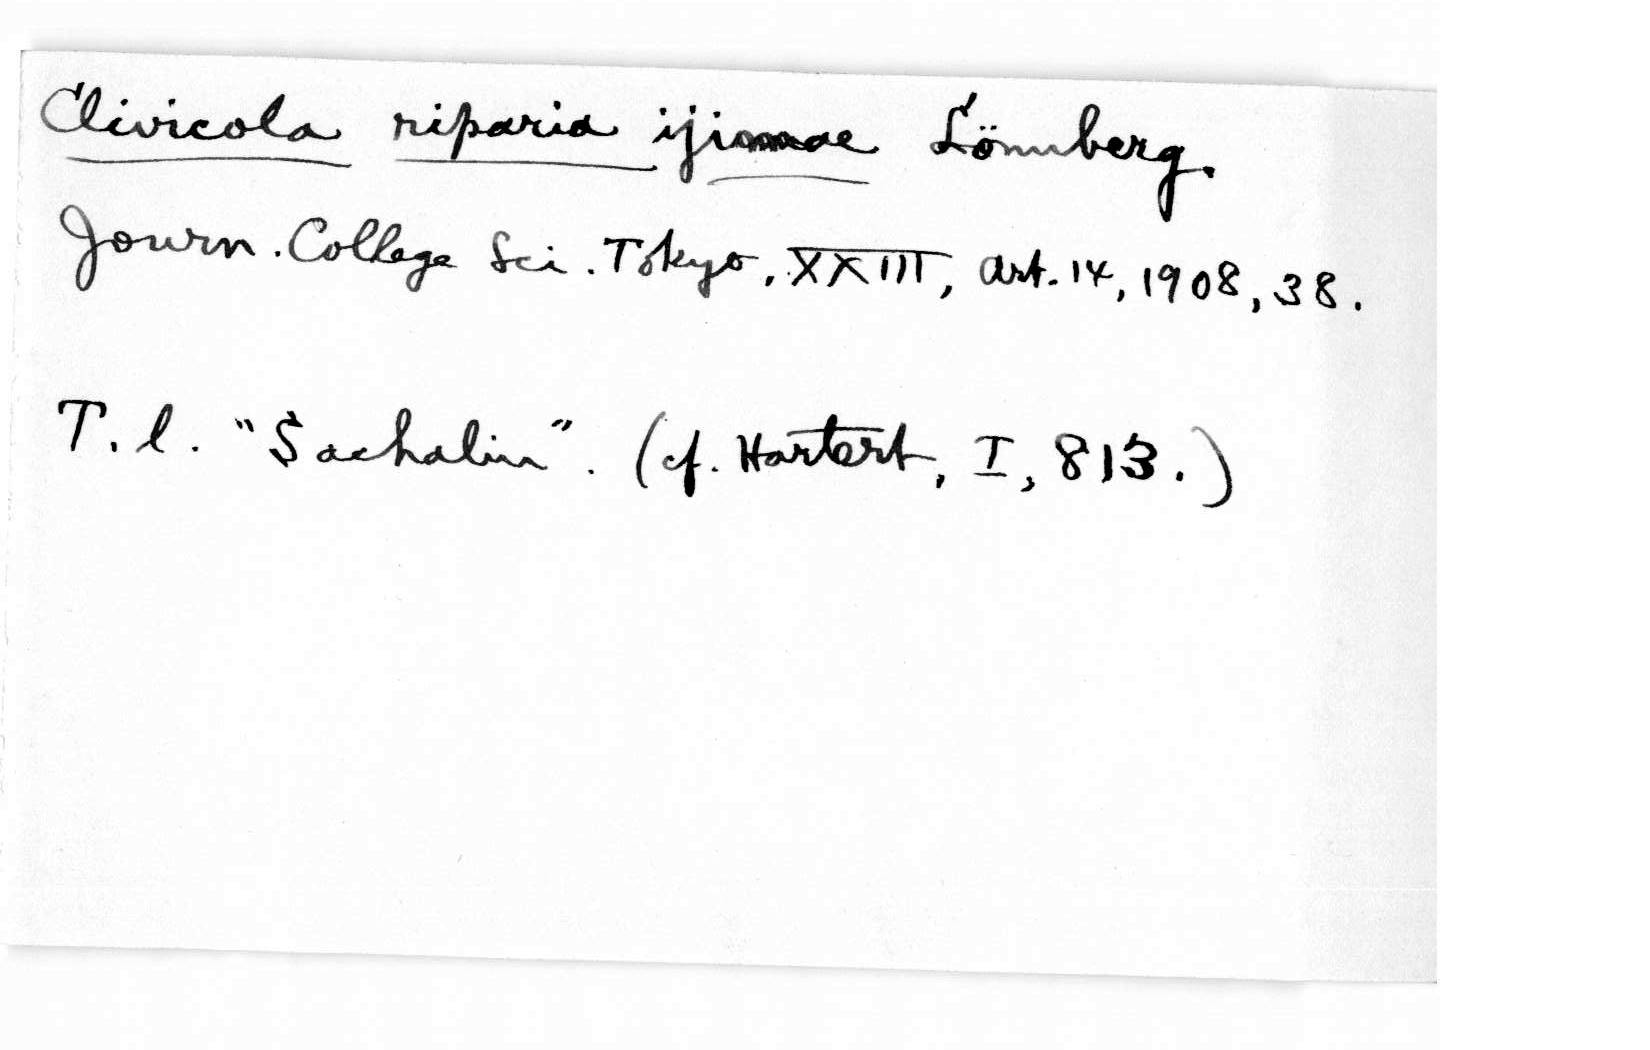 Clivicola riparia ijimae Lönnberg.
Journ. College Sci. Tokyo, XXIII, Art. 14, 1908, 38.
T. l. "Sachalin". (cf. Hartert, I, 813.)